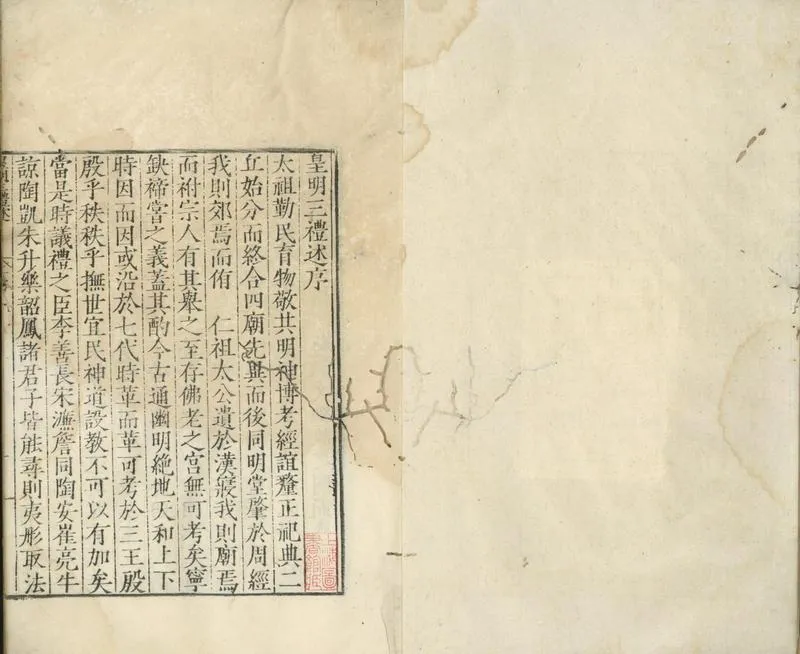 皇明三禮述序
太祖勤民育物敬共明神博考經誼釐正祀典二
丘始分而終合四廟先異而後同明堂肇於周經
我則郊焉而侑　仁祖太公遺於漢寢我則廟焉
而祔宗人有其舉之至存佛老之宮無可考矣寧
缺禘嘗之義蓋其酌今古通幽明絶地天和上下
時因而因或沿於七代時革而革可考於三王殷
殷乎秩秩乎撫世宜民神道設教不可以有加矣
當是時議禮之臣李善長宋濂詹同陶安崔亮牛
諒陶凱朱升樂韶鳳諸君子皆能尋則夷彤取法